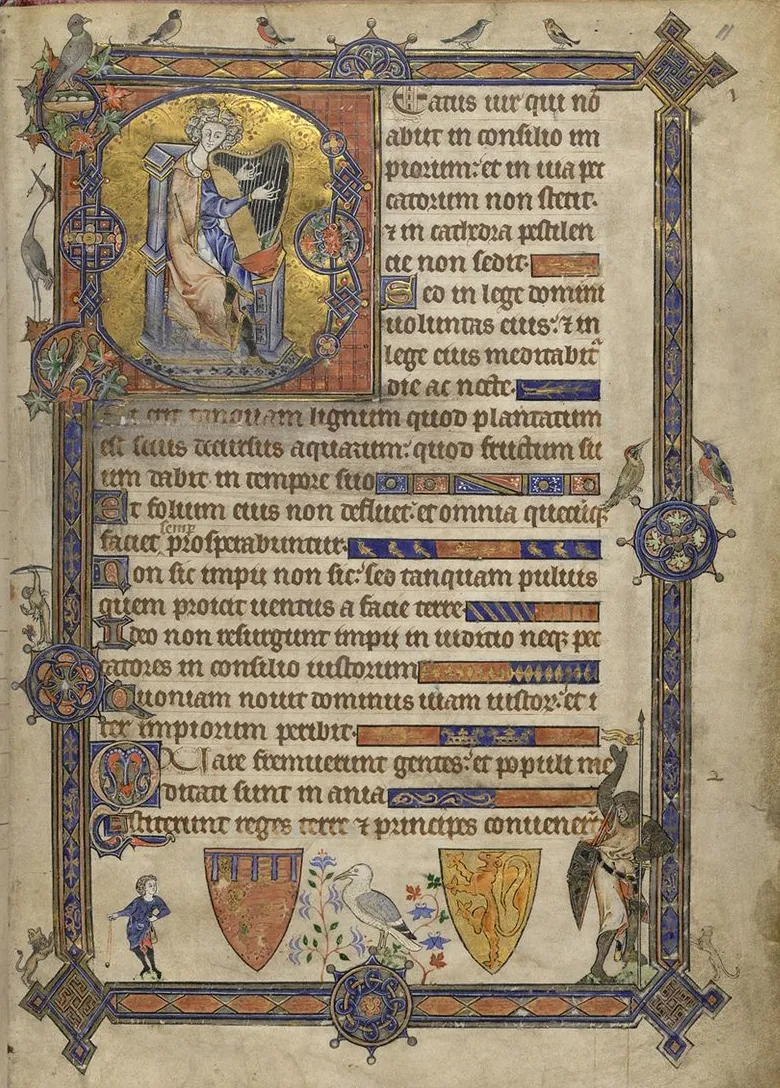 Beatus uir qui nō
abiit in consilio im
piorum: et in uia pec
catorum non stetit·
⁊ in cathedra pestilen
cie non sedit·
Sed in lege domini
uoluntas eius: ⁊ in
lege eius meditabit᷑
die ac nocte·
Et erit tanquam lignum quod plantatum
est secus decursus aquarum: quod fructum su
um dabit in tempore suo
Et folium eius non defluet: et omnia quecūq;
semp
faciet prosperabuntur·
Non sic impii non sic: sed tanquam puluis
quem proicit uentus a facie terre·
Ideo non resurgunt impii in iudicio neq; pec
catores in consilio iustorum
Quoniam nouit dominus uiam iustor: et i
ter impiorum peribit·
Quare fremuerunt gentes: et populi me
ditati sunt inania
Astiterunt reges terre ⁊ principes conuenerūt
11
1
2